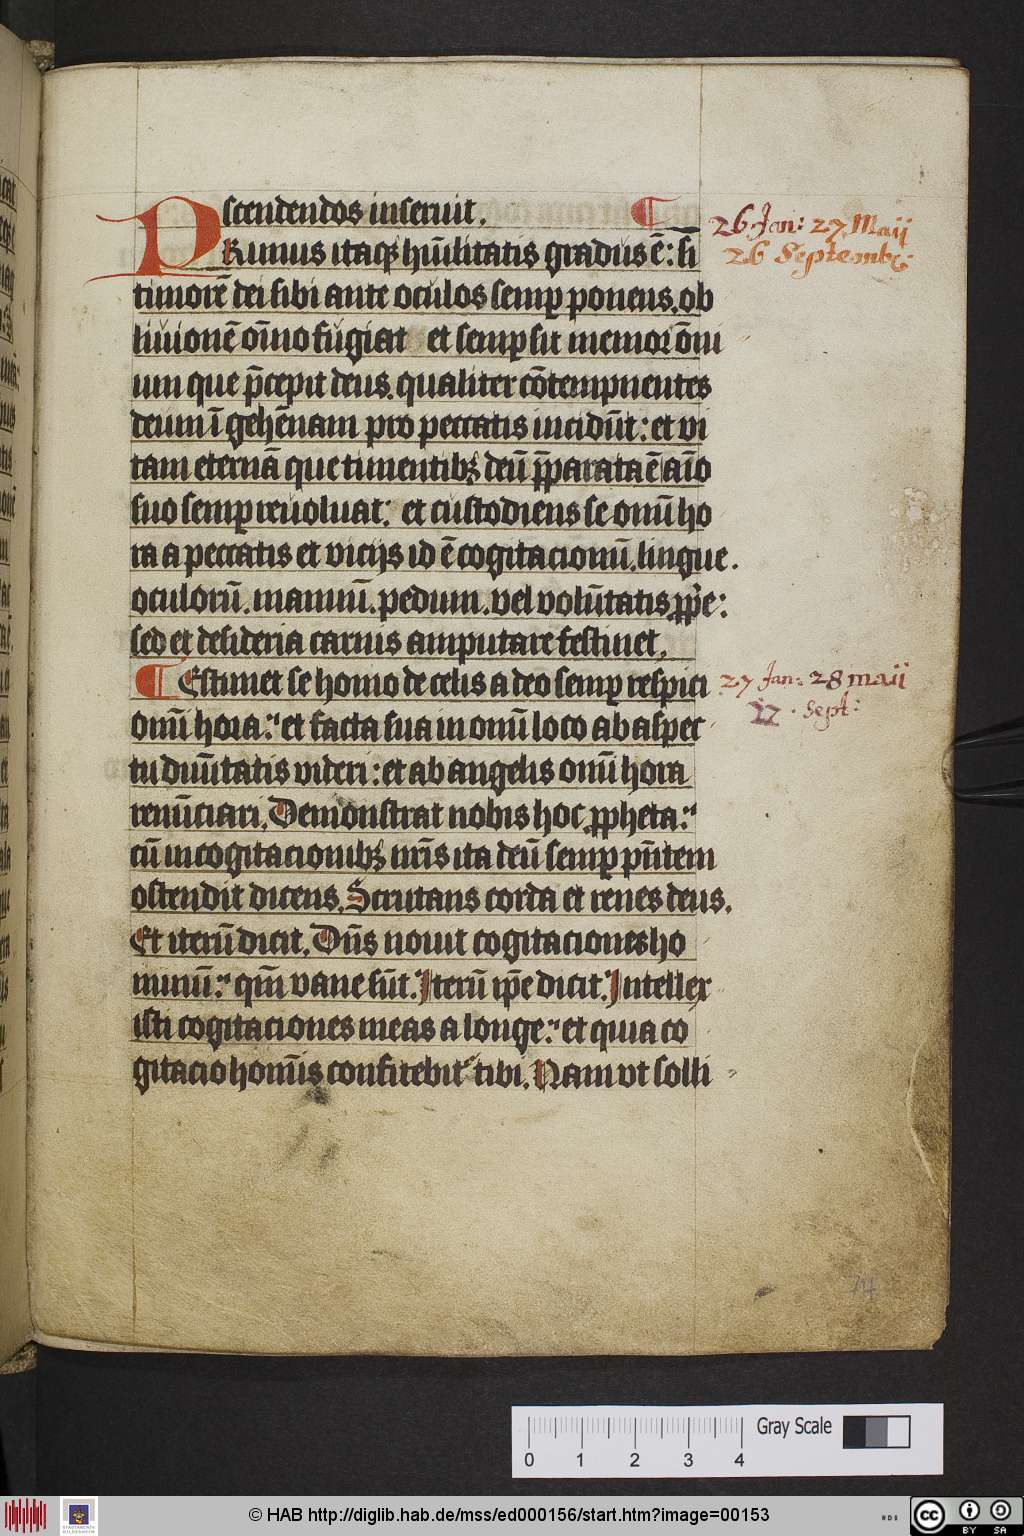 scendendos inseruit. ¶
PRimus itaqȝ hūilitatis gradus ē: si
timorē dei sibi ante oculos semꝑ ponens. ob
liuionē oīno fugiat et semꝑ sit memor ōni
um que p̄cepit deus. qualiter cōtempnentes
deum ī gehēnam pro peccatis incidūt: et vi
tam eternā que timentibȝ deū p̄parata ē aīo
suo semꝑ reuoluat: et custodiens se omī ho
ra a peccatis et vicijs id ē cogitacionū. lingue.
oculorū. manuū. pedum. vel volūtatis ꝓp̄e:
sed et desideria carnis amputare festinet.
¶ Estimet se homo de celis a deo semꝑ respici
omī hora: et facta sua in omī loco ab aspec
tu diuītatis videri: et ab angelis omī hora
renūciari. Demonstrat nobis hoc ꝓpheta:
cū in cogitacionibȝ nr̄is ita deū semꝑ pn̄tem
ostendit dicens. Scrutans corda et renes deus.
Et iterū dicit. Dn̄s nouit cogitaciones ho
minū: qm̄ vane sūt. Iterū ip̄e dicit. Intellex
isti cogitaciones meas a longe: et quia co
gitacio homīs confitebit᷑ tibi. Nam vt solli
26 Jan: 27 Maij
26 Septemb:
27 Jan: 28 maij
27 . Sept:
0 1 2 3 4
Gray Scale
© HAB http://diglib.hab.de/mss/ed000156/start.htm?image=00153
cc BY SA